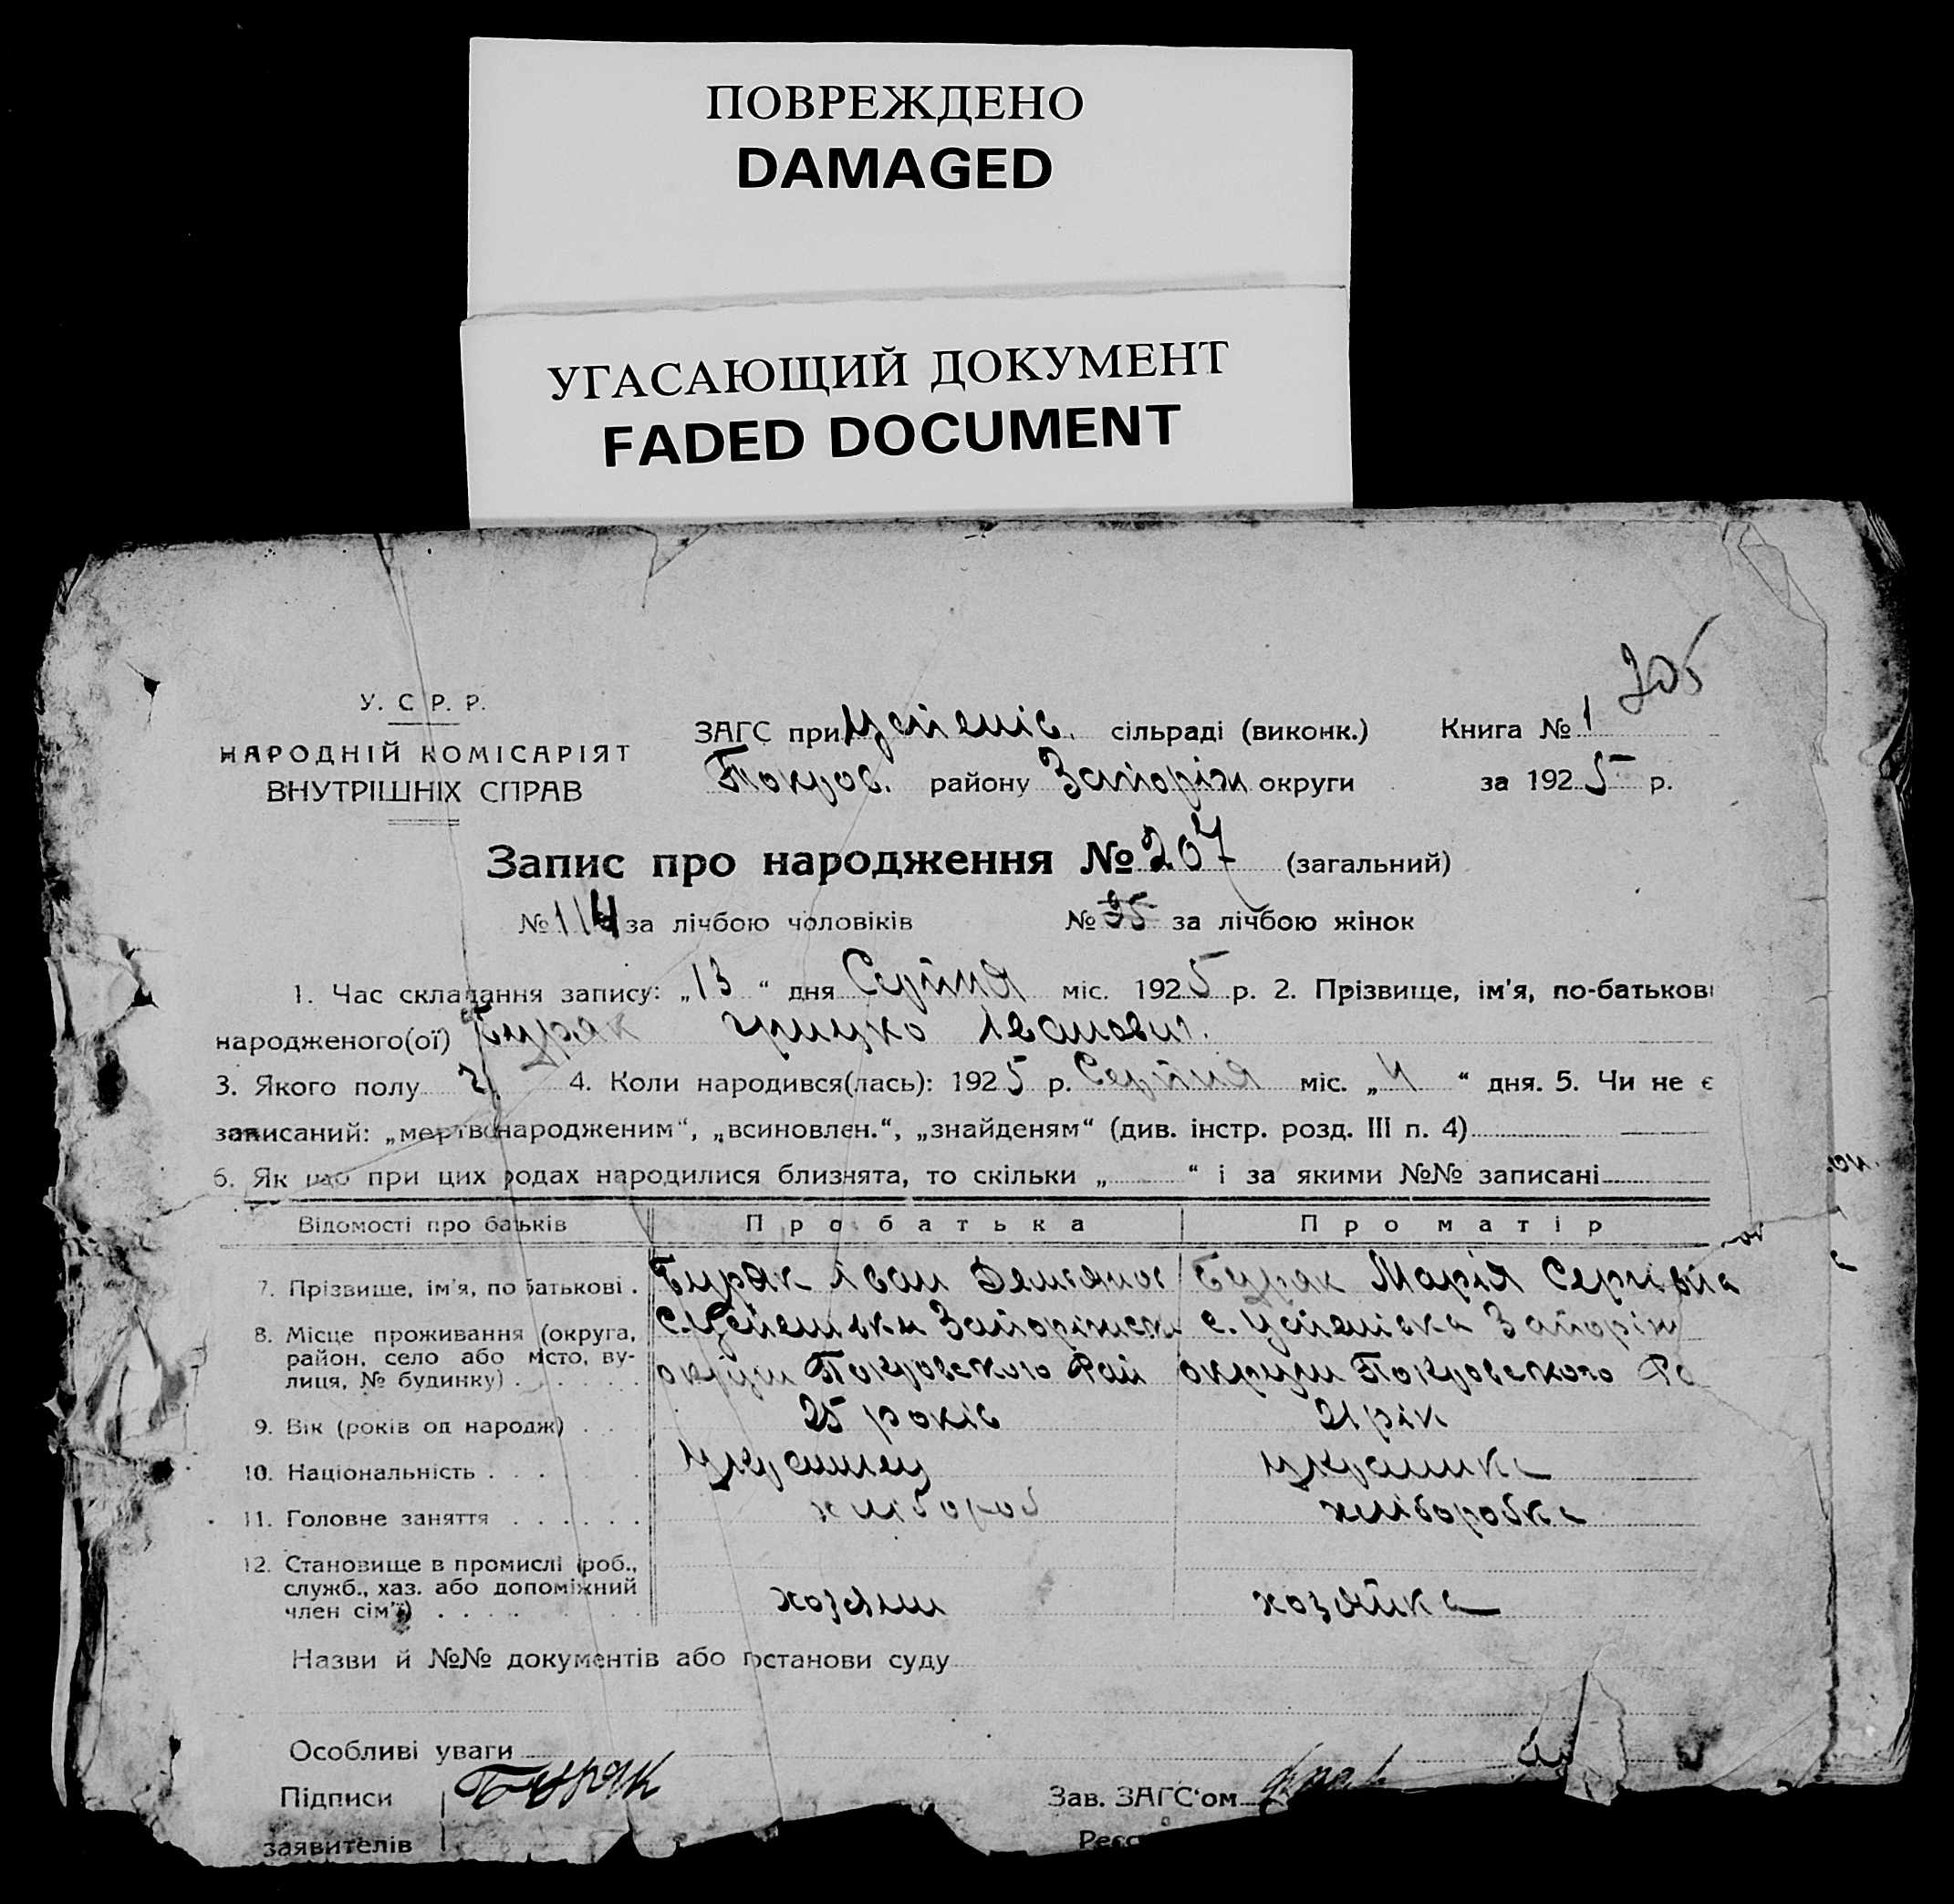 ПОВРЕЖДЕНО
DAMAGED
УГАСАЮЩИЙ ДОКУМЕНТ
FADED DOCUMENT
205
У. С. Р. Р.
НАРОДНІЙ КОМІСАРІЯТ
ВНУТРІШНІХ СПРАВ
ЗАГС при Успенів. сільраді (виконк.) Книга № 1
Покров. району Запоріж округи за 1925 р.
Запис про народження № 207 (загальний)
№ 114 за лічбою чоловіків № за лічбою жінок
1. Час складання запису: „13“ дня Серпня міс. 1925 р. 2. Прізвище, ім'я, по-батькові
народженого(ої) Буряк Грицко Іванович.
3. Якого полу ч. 4. Коли народився(лась): 1925 р. Серпня міс. „4“ дня. 5. Чи не є
записаний: „мертвонародженим“, „всиновлен.“, „знайденям“ (див. інстр. розд. III п. 4)
6. Як що при цих родах народилися близнята, то скільки „ “ і за якими №№ записані
Відомості про батьків Про батька Про матір
7. Прізвище, ім'я, по батькові . Буряк Іван Демянов Буряк Марія Сергівна
8. Місце проживання (округа, район, село або місто, вулиця, № будинку) . с. Успенівки Запоріжск с. Успенівка Запоріж
округи Покровского Рай округи Покровского Ра
9. Вік (років од народж) . . 25 років 21 рік
10. Національність . . . . . украинец украинка
11. Головне заняття . . . . . . хлібороб хліборобка
12. Становище в промислі (роб., служб., хаз. або допоміжний член сім'ї) . . . . хозяин хозяйка
Назви й №№ документів або постанови суду
Особливі уваги
Підписи Буряк Зав. ЗАГС'ом
заявителів